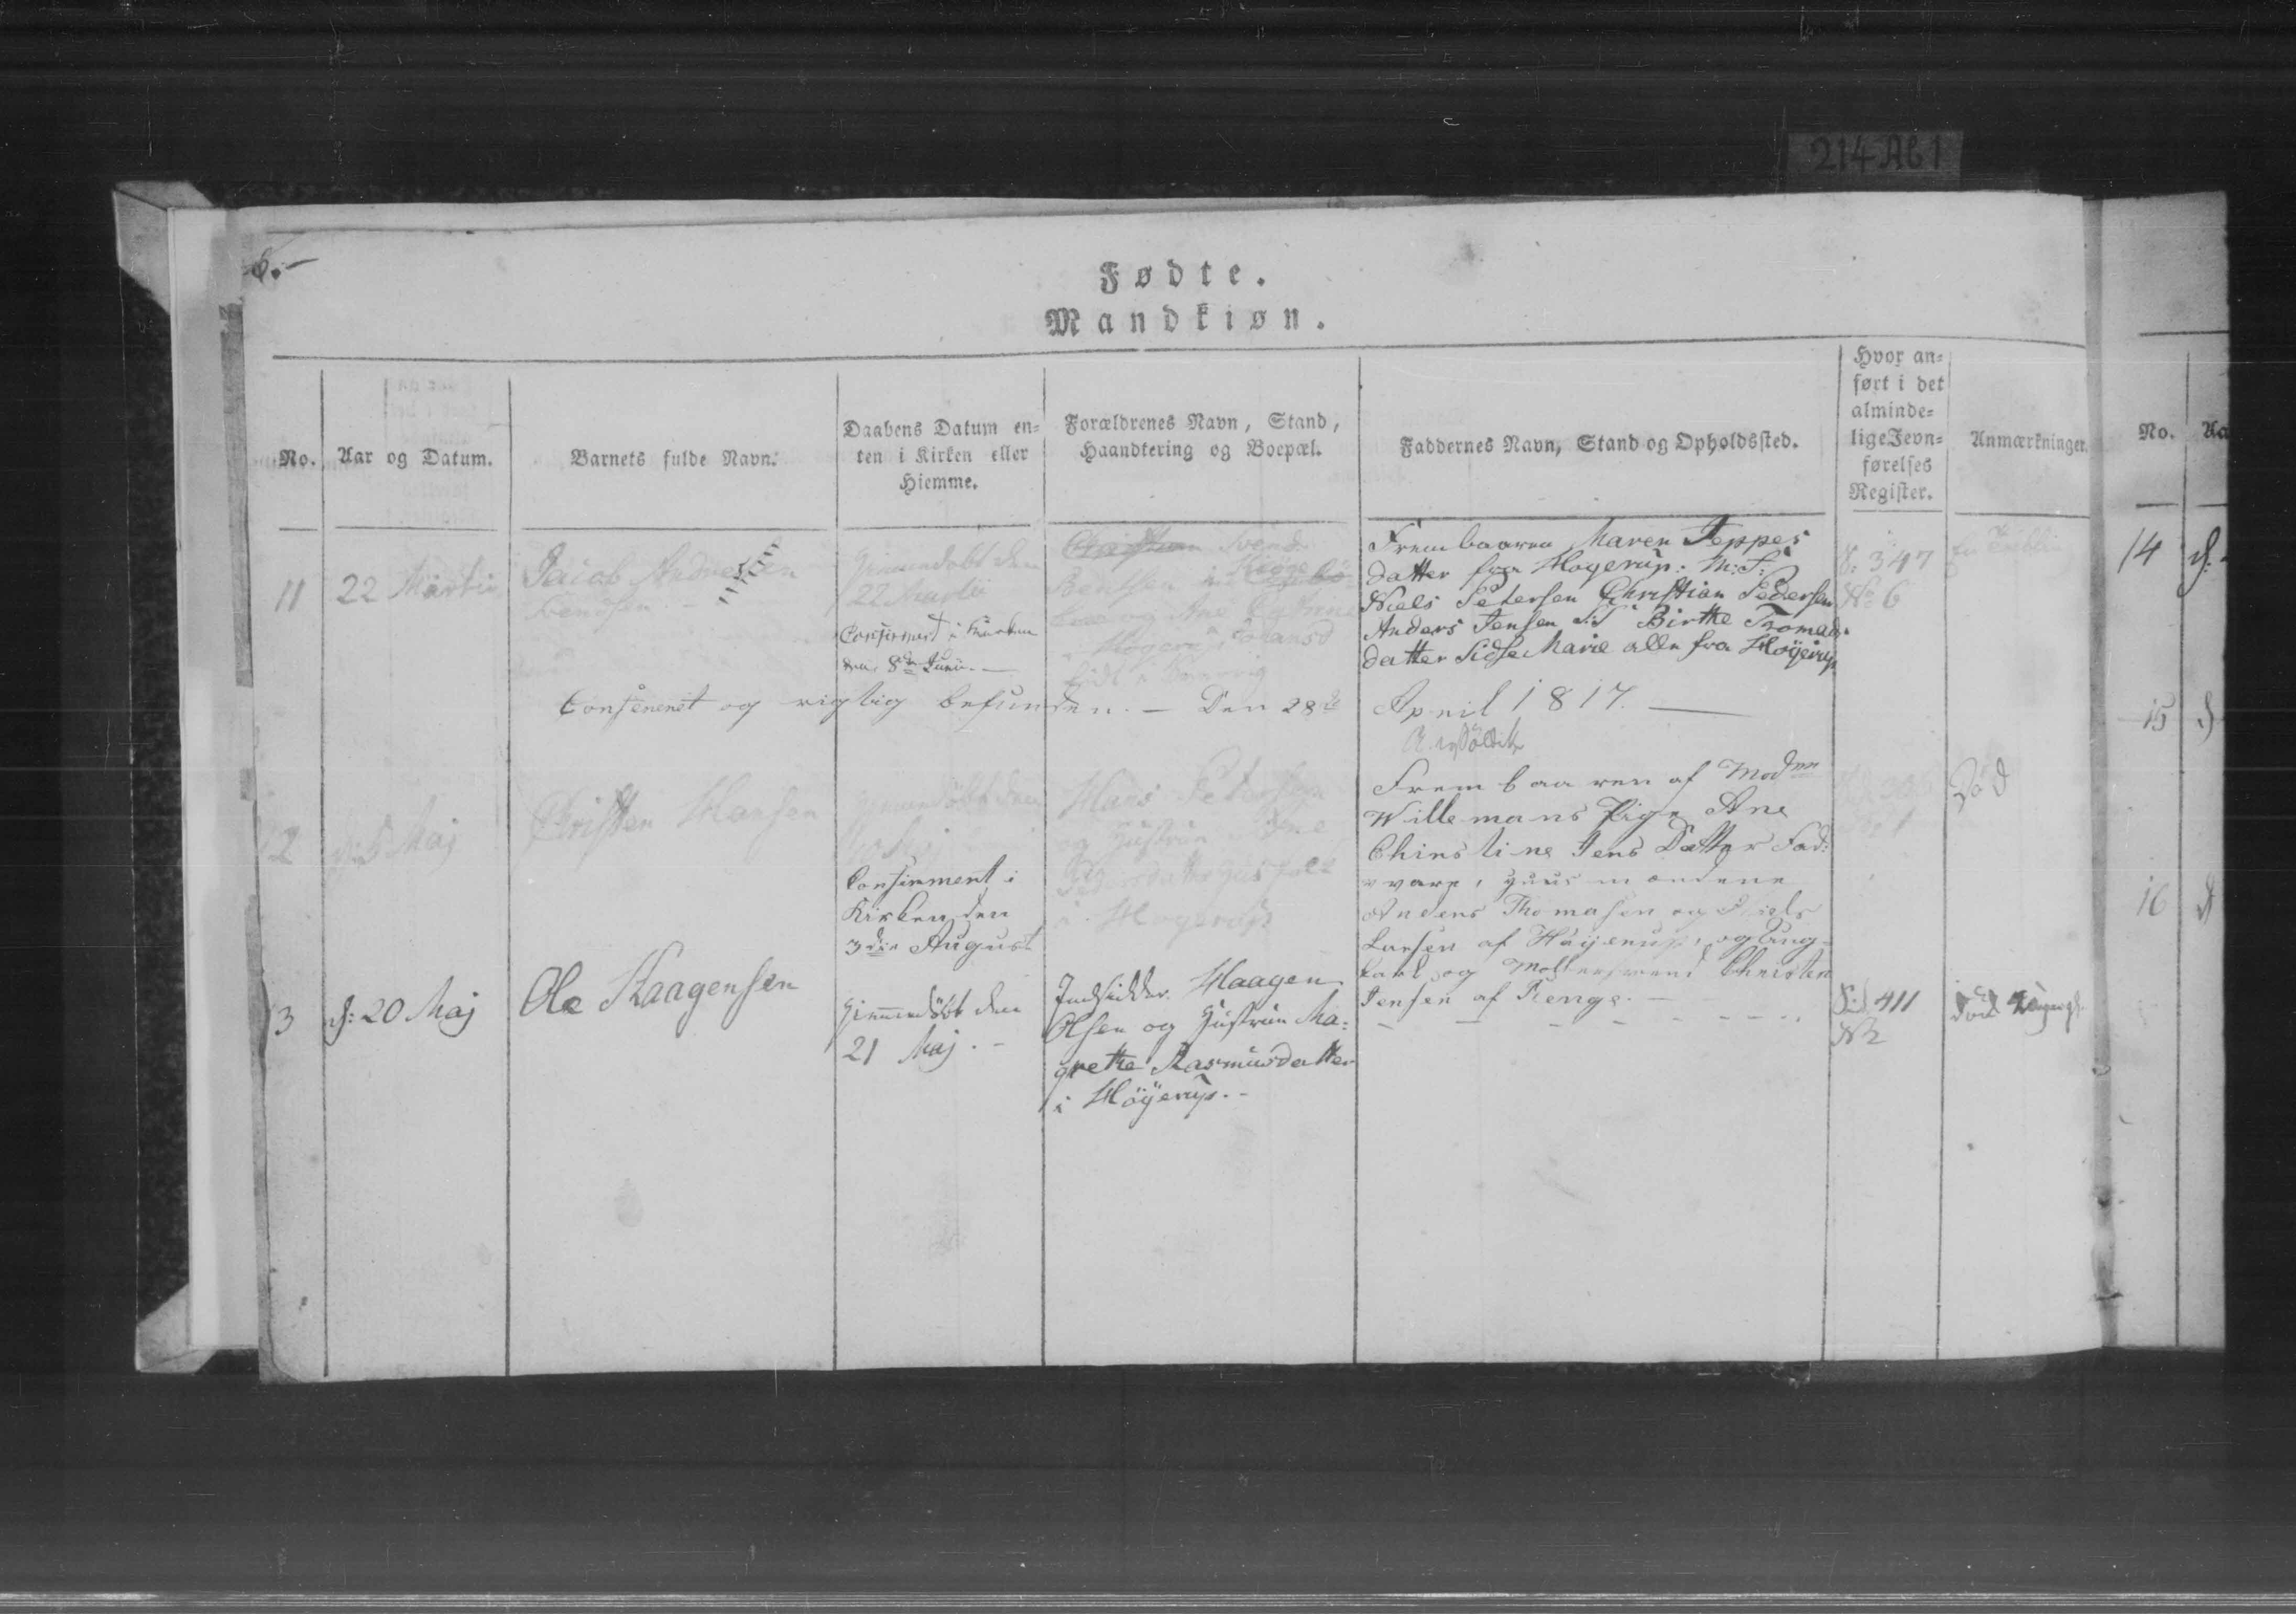 214 Ab 1
6.-
Fødte.
Mandkiøn.
No.
Aar og Datum.
Barnets fulde Navn.
Daabens Datum en-
ten i Kirken eller
Hiemme.
Forældrenes Navn, Stand,
Haandtering og Boepæl.
Faddernes Navn, Stand og Opholdssted.
Hvor an-
ført i det
alminde-
lige Jevn-
førelses
Register.
Anmærkninger.
11
22 Martii
Jacob Andresen
Svendsen
Hiemmedøbt den
22 Martii
Confirmert i Kirken
den 8de Junii.
Christian Svend
Bentsen i Kiøge
og Ane
Høgerup
Frembaaren Maren Jeppes
datter fra Høgerup. M: F:
Niels Petersen Christian Pedersen
Anders Jensen Birthe Tromas
datter Sidse Marie alle fra Høÿerup
S: 347
No 6
Confereret og rigtig befunden. – Den 28de April 1817.
12
d: 5 Maj
Christen Hansen
Hiemmedøbt den
Confirmert i
Kirken den
3die August
Hans Petersen
og Hustrue Ane
Pedersdatter
i Høgerup
Frembaaren af Mad
Willemans Pige Ane
Chirstine Jens Datter Fad:
vare, Huusmændene
Anders Thomasen og Niels
Larsen af Høÿerup, og Ung-
karl og Møllersvend Christen
Jensen af Renge. –
Død
13
d: 20 Maj
Ole Haagensen
Hiemmedøbt den
21 Maj. –
Indsidder Haagen
Olsen og Hustrue Ma-
grethe Rasmusdatter
i Høÿerup. –
S: 411
N 2
død
No.
Aa
14
d:
15
d
16
d